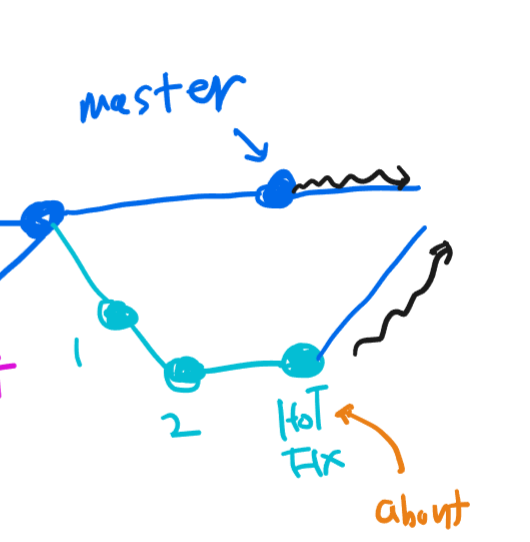 master
1
2
HoT
FIX
about